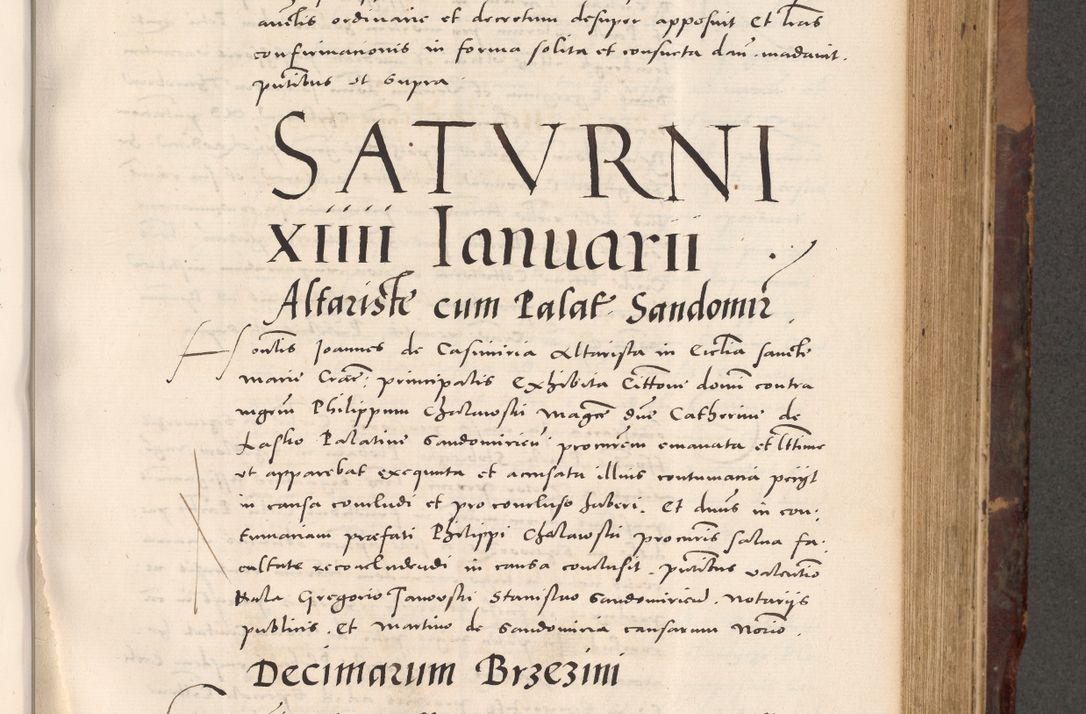 ordinarie et decretum desuper apposuit Et lras
confirmationis in forma solita et consueta dari madavit.
pntibus ut supra
SATVRNI
xiiii Ianuarii
Altariste cum Palat. Sandomir
Ioannes de Casimiria Altarista in Ecclia sancte
Marie Crac: principalis Exhibita Cittone domi contra
mgrum Philippum Chalawski Magce dne Catherine de
Lasko Palatine Sandomirien procurem emanata et lttime
ut apparebat exequuta et accusata illius contumacia petiit
in causa concludi et pro concluso haberi. Et dnus in con:
tumaciam præfati Philippi Chalawski procuris salva fa:
cultate reconcludendi in causa conclusit. pntibus valentino
Gregorio Janovski Stanislao Sandomirien. Notariis
publicis. Et Martino de Sandomiria causarum Norio.
Decimarum Brzezini